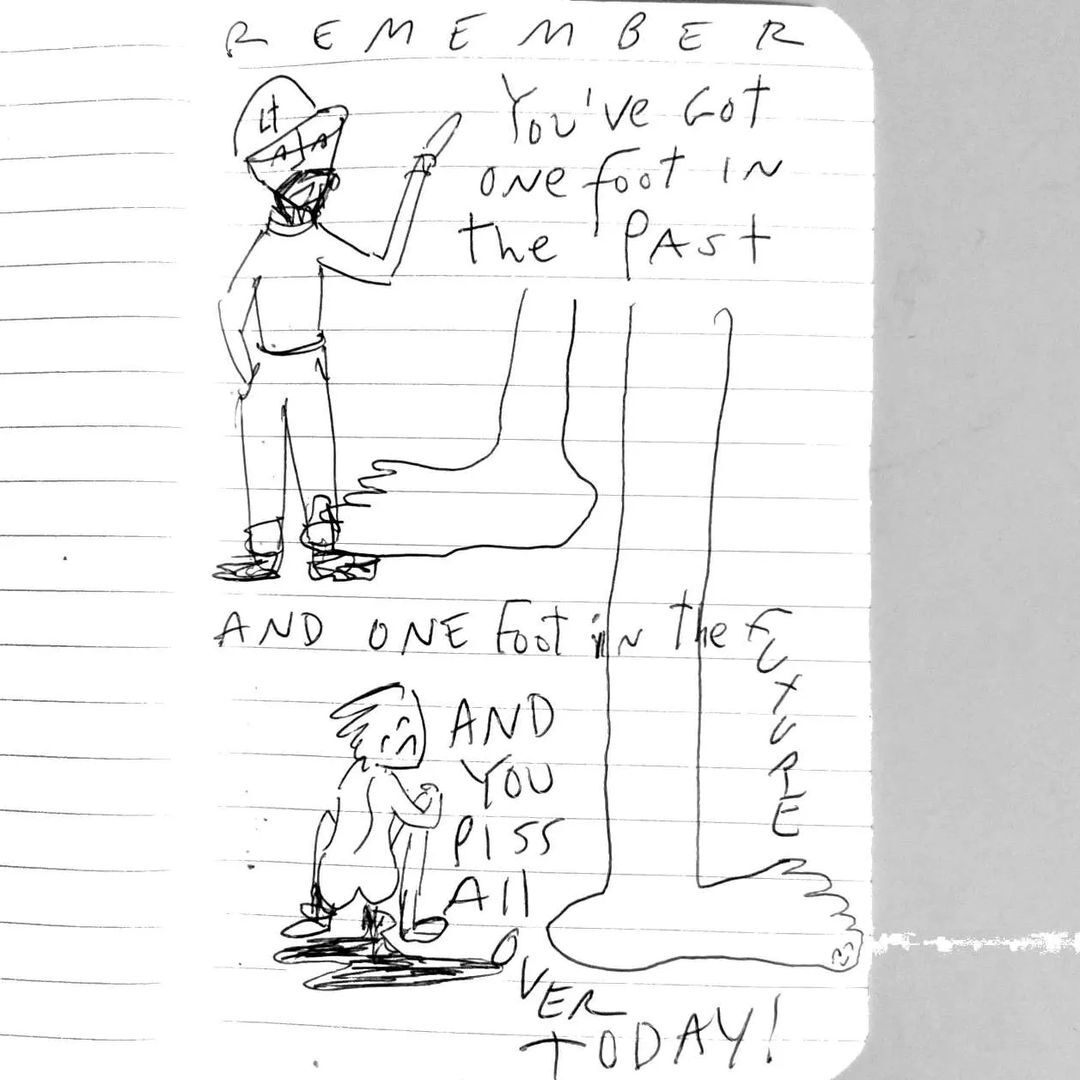 R E M E M B E R
You've Got
one foot in
the Past
AND ONE Foot in the FUTURE
AND
YOU
PISS
All
OVER
TODAY!